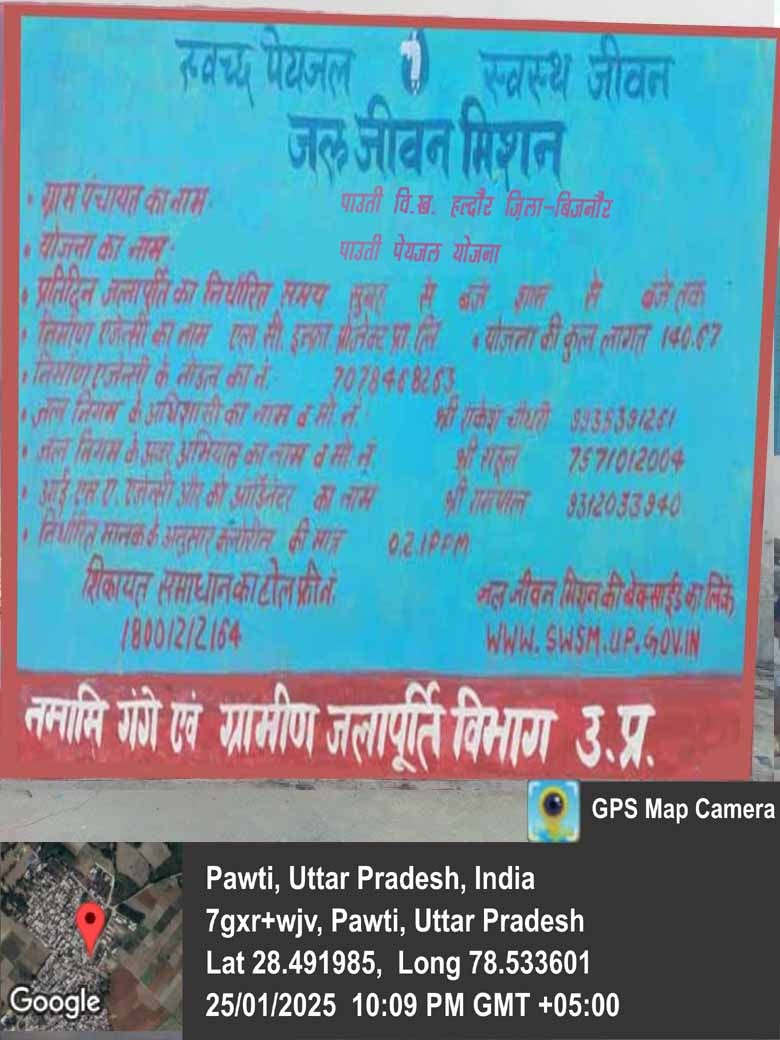 स्वच्छ पेयजल स्वस्थ जीवन
जल जीवन मिशन
• ग्राम पंचायत का नाम- पाउती वि.ख. हल्दौर ज़िला-बिजनौर
• योजना का नाम- पाउती पेयजल योजना
• प्रतिदिन जलापूर्ति का निर्धारित समय सुबह से बजे शाम से बजे तक
• निर्माण एजेन्सी का नाम एल सी इन्फ्रा प्रोजेक्ट प्रा लि • योजना की कुल लागत 140.67
• निर्माण एजेन्सी के नोडल का नं. 7078468263
• जल निगम के अधिशासी का नाम व मो. नं. श्री राकेश चौधरी
• जल निगम के अवर अभियंता का नाम व मो. नं. श्री राहुल 7571012004
• आई एस ए. एजेन्सी और को ऑर्डिनेटर का नाम श्री रामपाल
• निर्धारित मानक के अनुसार क्लोरीन की मात्र 0.2 1PPM
शिकायत समाधान का टोल फ्री नं. जल जीवन मिशन की वेबसाईड का लिंक
18001212164 WWW.SWSM.UP.GOV.IN
नमामि गंगे एवं ग्रामीण जलापूर्ति विभाग उ.प्र.
GPS Map Camera
Pawti, Uttar Pradesh, India
7gxr+wjv, Pawti, Uttar Pradesh
Lat 28.491985, Long 78.533601
25/01/2025 10:09 PM GMT +05:00
Google